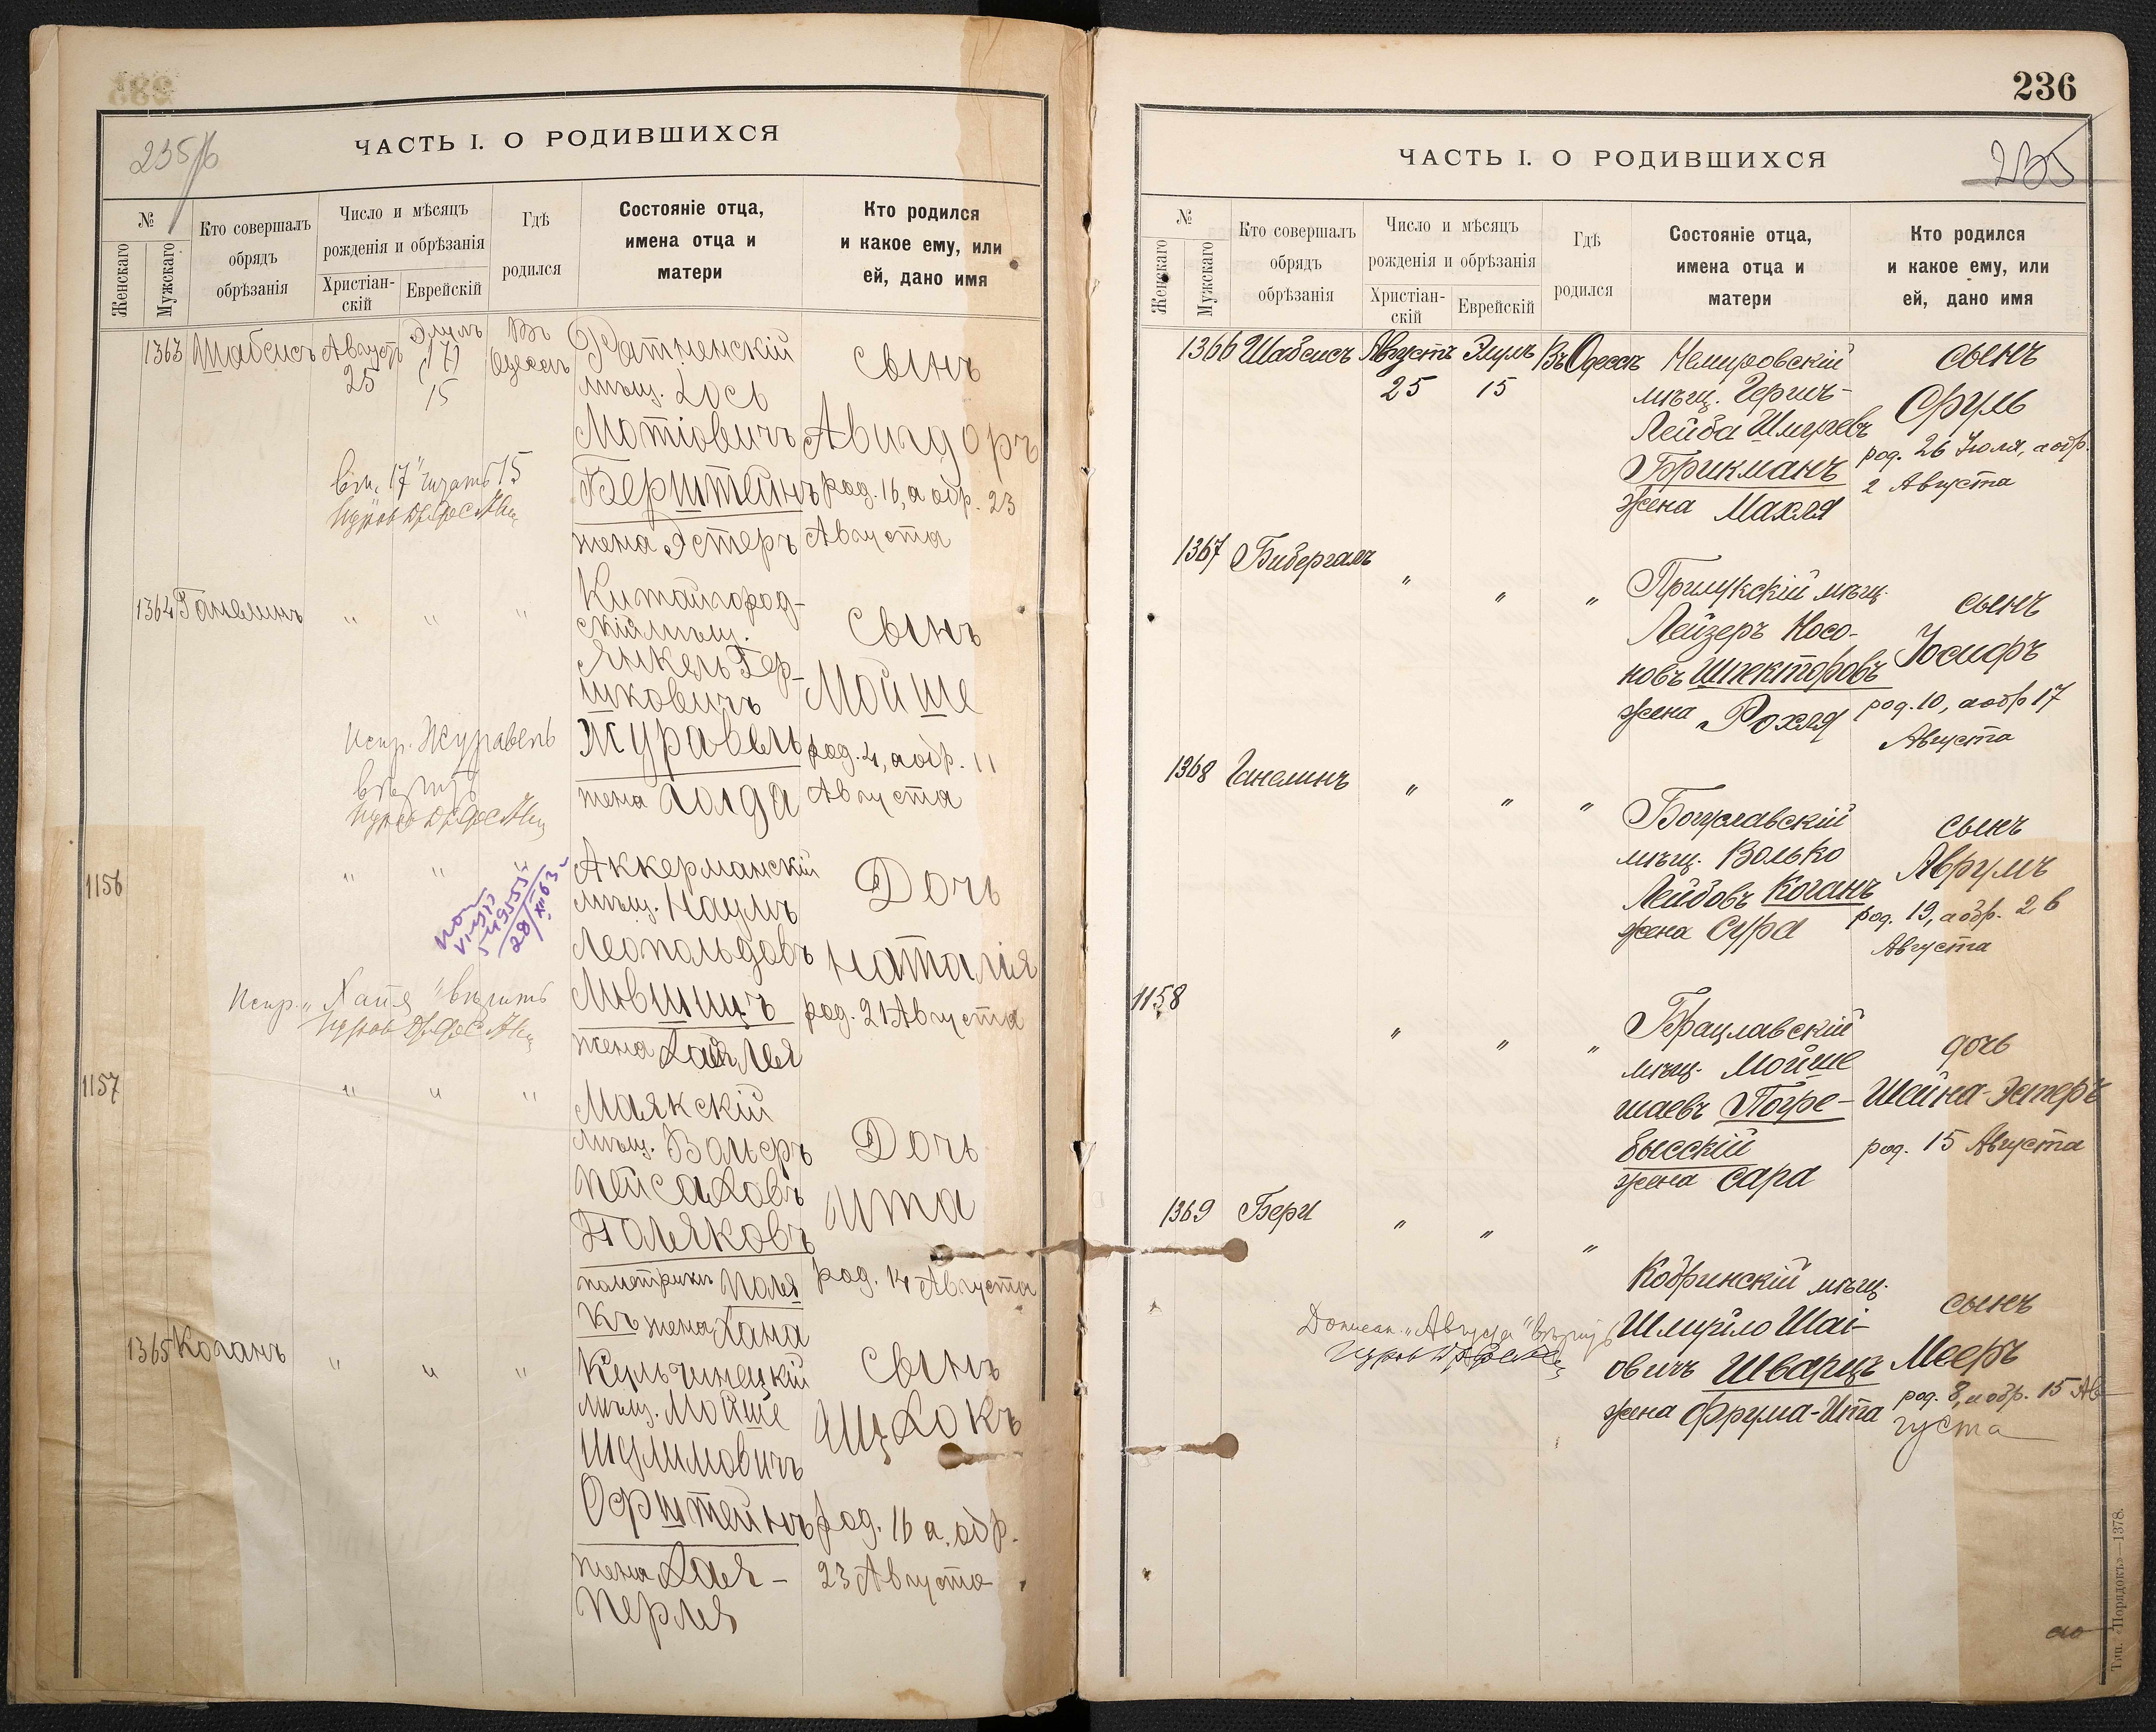 235/б
ЧАСТЬ I. О РОДИВШИХСЯ
№
Женскаго
Мужскаго
Кто совершалъ
обрядъ
обрѣзанія
Число и мѣсяцъ
рожденія и обрѣзанія
Христіан-
скій
Еврейскій
Гдѣ
родился
Состояніе отца,
имена отца и
матери
Кто родился
и какое ему, или
ей, дано имя
1363 Шабсисъ Августъ 25 Элулъ (17) 15 Въ Одессѣ
Ратненскій
мѣщ. Іось
Мотіовичъ
Берштейнъ
жена Эстеръ
сынъ
Авигдоръ
род. 16, а обр. 23
Августа
вм. "17" читать 15
1364 Ганелинъ " " "
Китайгород-
скій мѣщ.
Янкель Гер-
шковичъ
Журавель
жена Голда
сынъ
Мойше
род. 4, а обр. 11
Августа
Испр. Журавель
вѣрить
1156 " "
Аккерманскій
мѣщ. Наумъ
Леопольдовъ
Лившицъ
жена Хая Лея
Дочь
Наталія
род. 21 Августа
28/XII 63
Испр. "Хая" вѣрить
1157 " " "
Маякскій
мѣщ. Вольфъ
Пейсаховъ
Поляковъ
по метрикѣ Поля
къ жена Хана
Дочь
Ита
род. 14 Августа
1365 Коганъ " " "
Кульчинецкій
мѣщ. Мойше
Шулимовичъ
Орштейнъ
жена Хая-
Перля
сынъ
Ицхокъ
род. 16 а обр.
23 Августа
236
235
ЧАСТЬ I. О РОДИВШИХСЯ
№
Женскаго
Мужскаго
Кто совершалъ
обрядъ
обрѣзанія
Число и мѣсяцъ
рожденія и обрѣзанія
Христіан-
скій
Еврейскій
Гдѣ
родился
Состояніе отца,
имена отца и
матери
Кто родился
и какое ему, или
ей, дано имя
1366 Шабсисъ Августъ 25 Элулъ 15 Въ Одессѣ
Немировскій
мѣщ. Гершъ-
Лейба Шмулевъ
Брикманъ
жена Махля
сынъ
Сруль
род. 26 Іюля, а обр.
2 Августа
1367 Бибергалъ " " "
Прилукскій мѣщ.
Лейзеръ Носо-
новъ Шпекторовъ
жена Рохля
сынъ
Іосифъ
род. 10, а обр 17
Августа
1368 Ганелинъ " " "
Богуславскій
мѣщ. Волько
Лейбовъ Коганъ
жена Сура
сынъ
Аврумъ
род. 19, а обр. 26
Августа
1158 " " "
Брацлавскій
мѣщ. Мойше
шаевъ Погре-
бысскій
жена Сара
дочь
Шейна-Эстеръ
род. 15 Августа
1369 Бери " " "
Кобринскій мѣщ.
Шмуйло Шаі-
овичъ Шварцъ
жена Фрума-Ита
сынъ
Мееръ
род. 8, а обр. 15 Ав-
густа
Дописан. "Августа" вѣрить
Тип. «Порядокъ»—1378.